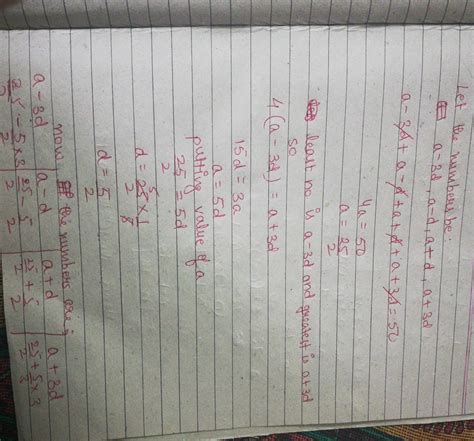 Let the numbers be:
a-3d, a-d, a+d, a+3d
a-3d+a-d+a+d+a+3d=50
4a=50
a=25/2
least no is a-3d and greatest is a+3d
so
4(a-3d)=a+3d
15d=3a
a=5d
putting value of a
25/2=5d
d=25/2×1/5
d=5/2
now the numbers are:
a-3d | a-d | a+d | a+3d
25/2-5/2×3 | 25/2-5/2 | 25/2+5/2 | 25/2+5/2×3